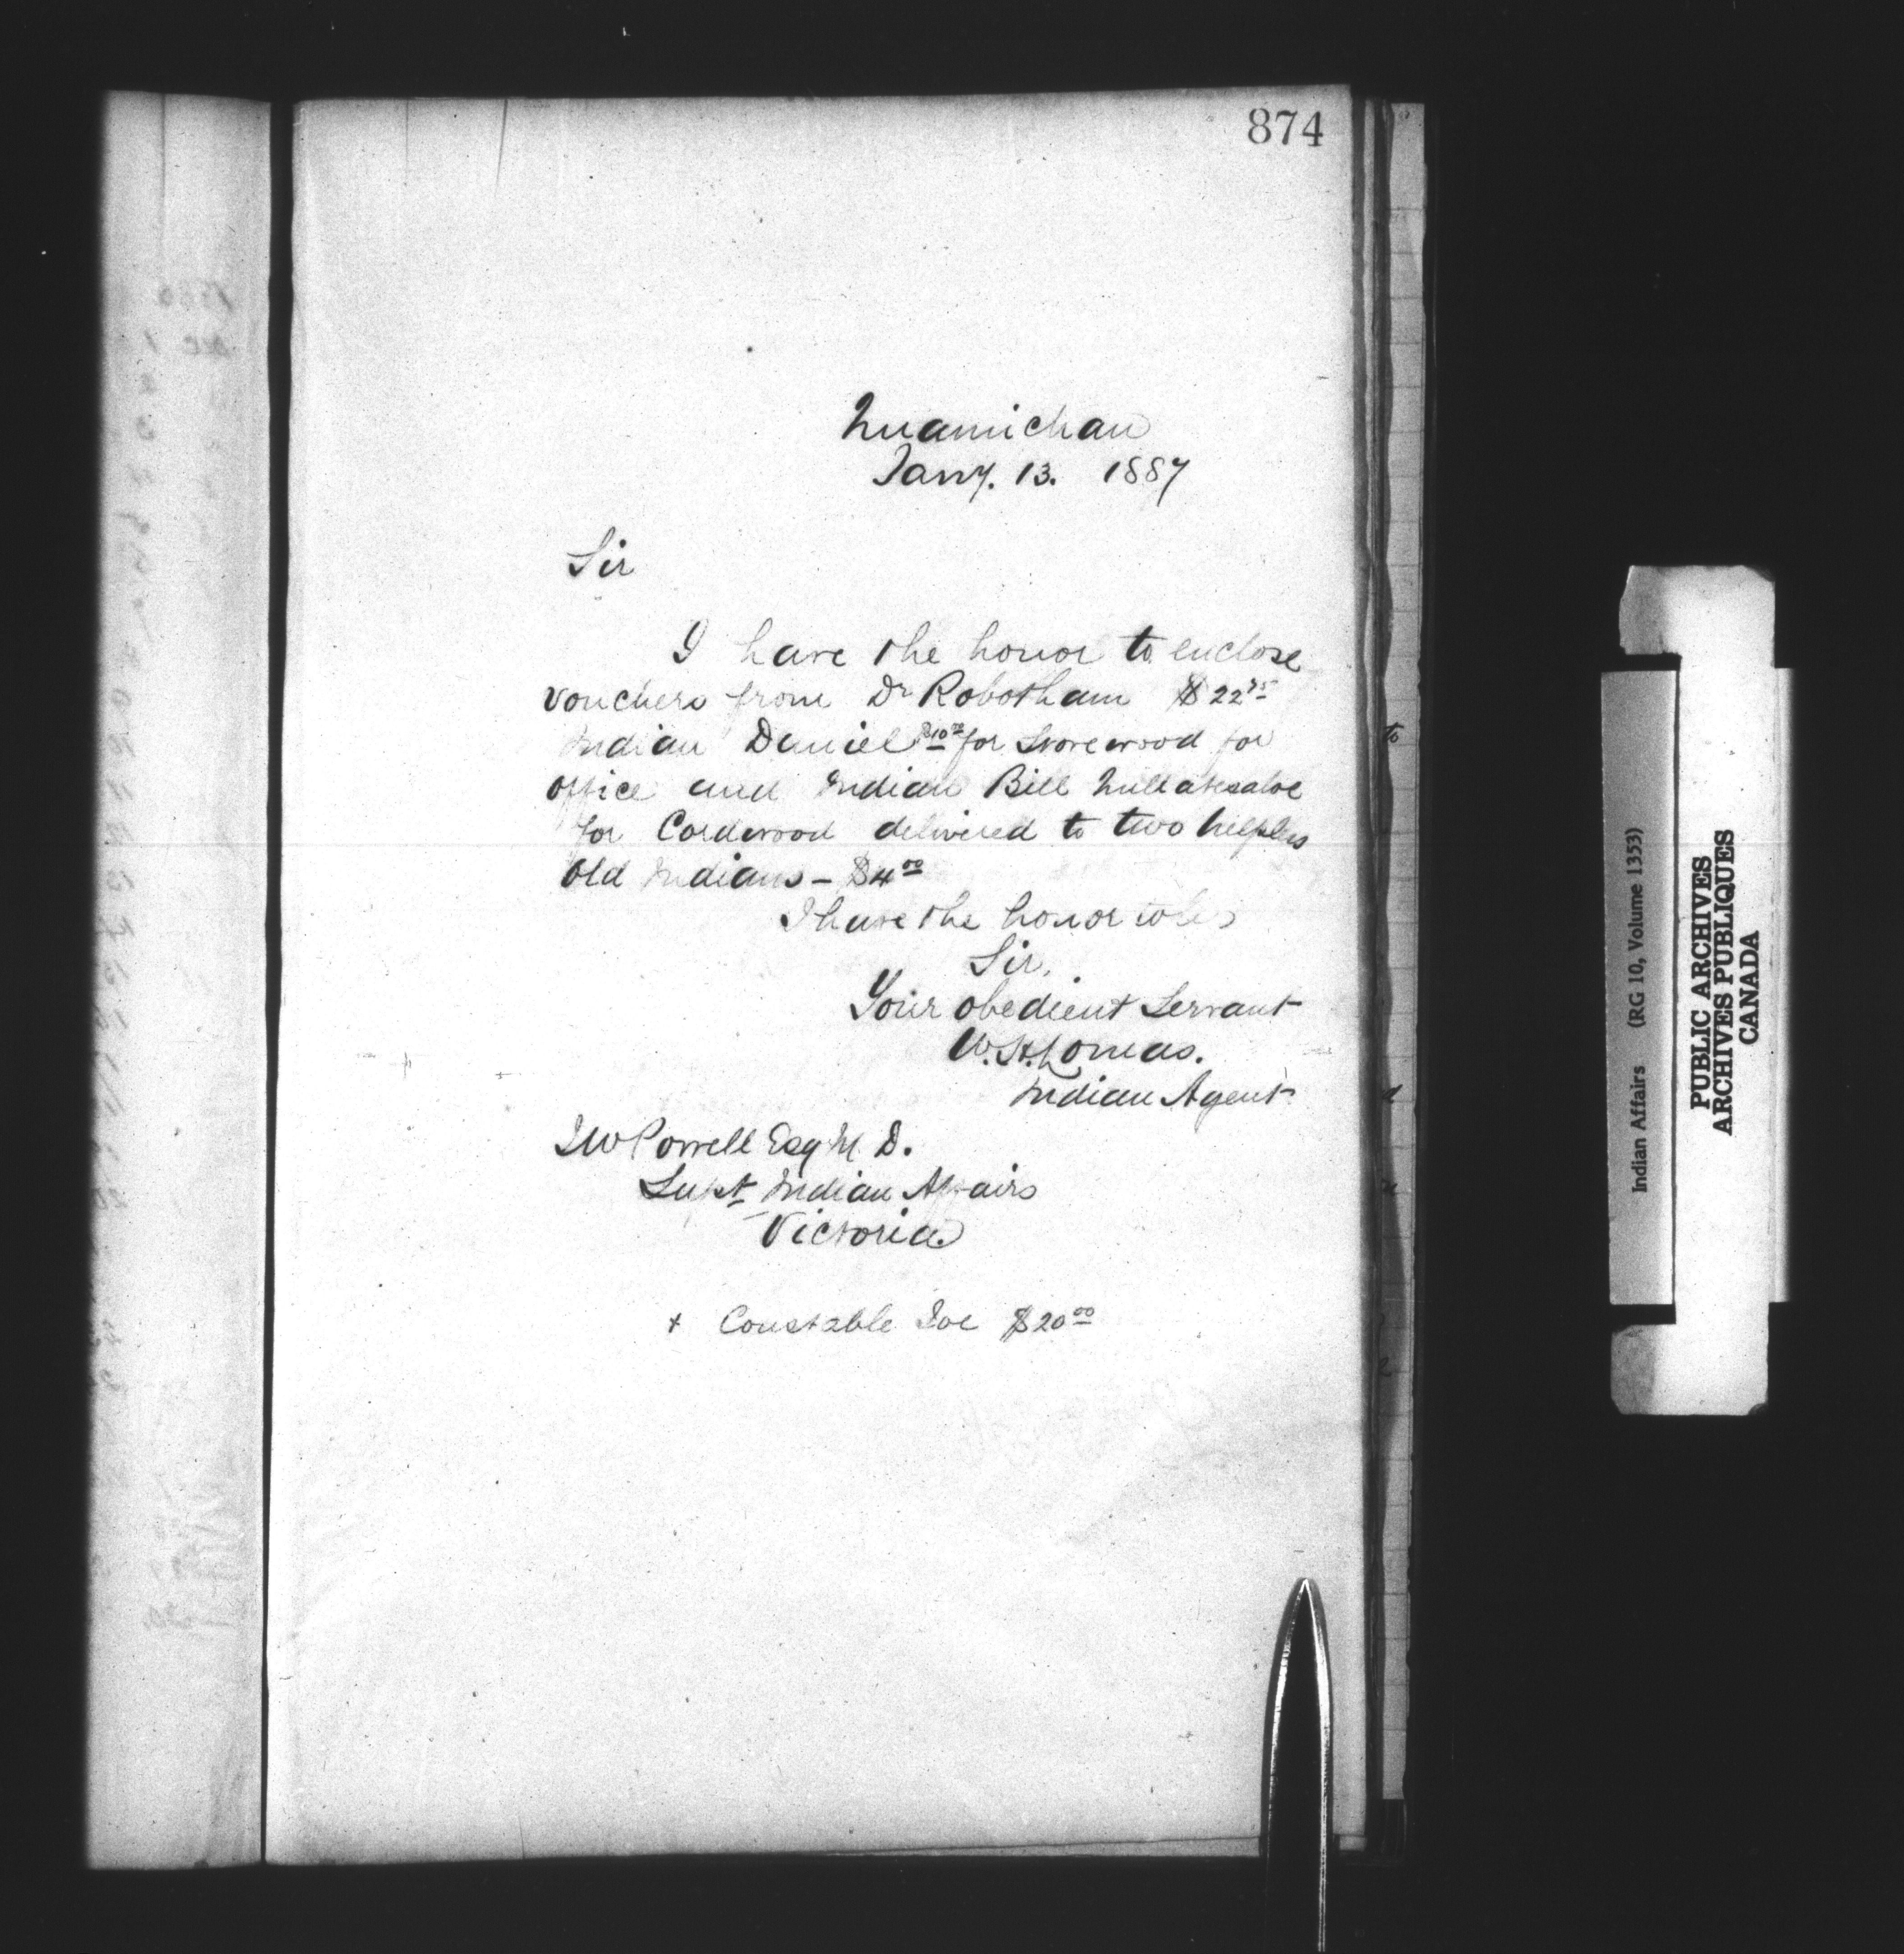 874
Quamichan
Jany. 13. 1887
Sir
I have the honor to enclose
vouchers from Dr Robotham $22 75
Indian Daniel $10 00 for Stovewood for
office and Indian Bill
for Cordwood delivered to two helpless
old Indians – $4 00
I have the honor to be
Sir,
Your obedient Servant
W. H. Lomas.
Indian Agent
I W Powell Esq M. D.
Supt Indian Affairs
Victoria
+ Constable Joe $20 00
Indian Affairs (RG 10, Volume 1353)
PUBLIC ARCHIVES
ARCHIVES PUBLIQUES
CANADA